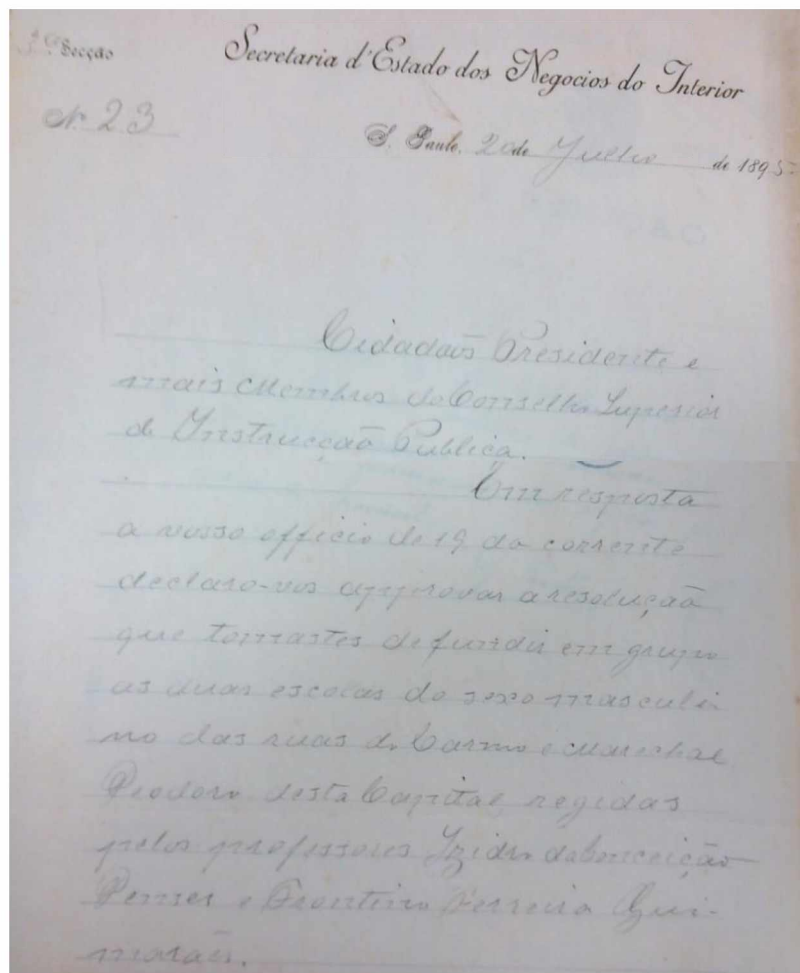 Secção
Secretaria d'Estado dos Negocios do Interior
Nº 23
S. Paulo, 20 de Julho de 1895
Cidadãos Presidente e
mais Membros do Conselho Superior
de Instrucção Publica.
Em resposta
a vosso officio de 19 do corrente
declaro-vos approvar a resolução
que tomastes de fundir em grupo
as duas escolas do sexo masculi
no das ruas do Carmo e Marechal
Deodoro desta Capital regidas
pelos professores Izidro da Conceição
e Ferreira Gui-
marães.